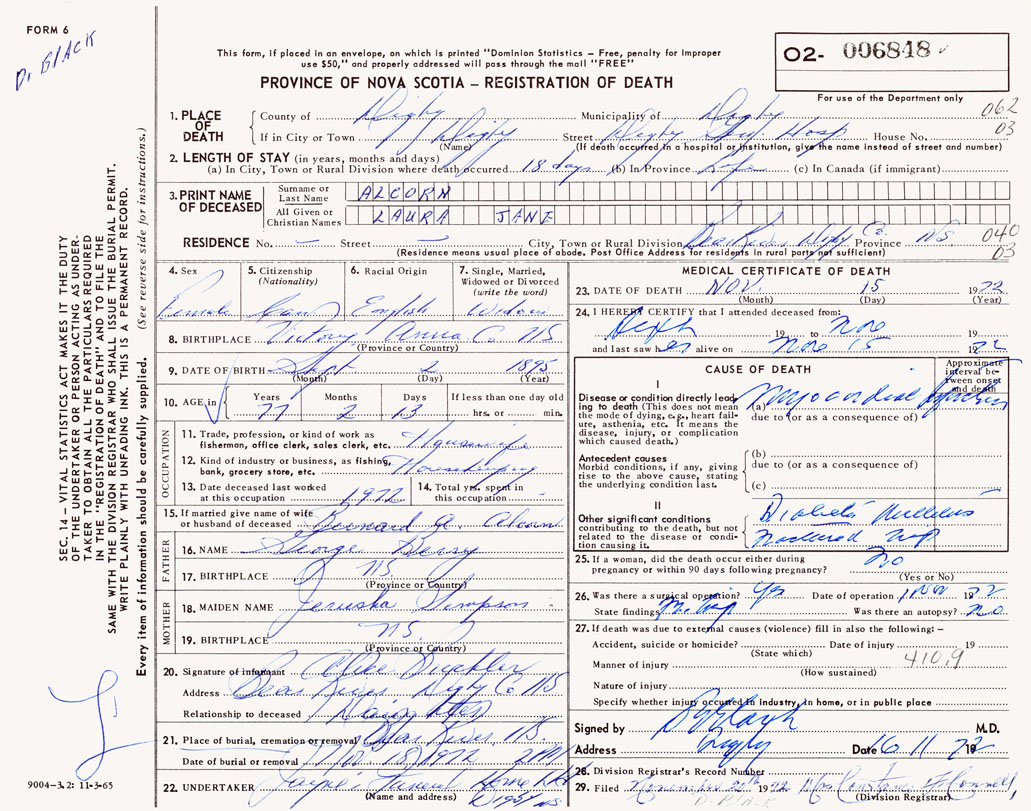 FORM 6
D. BLACK
This form, if placed in an envelope, on which is printed "Dominion Statistics – Free, penalty for improper
use $50," and properly addressed will pass through the mail "FREE"
PROVINCE OF NOVA SCOTIA – REGISTRATION OF DEATH
O2- 006848
For use of the Department only
062
03
1. PLACE OF DEATH
County of Digby Municipality of Digby
If in City or Town Digby Street Digby Gen Hosp House No.
(Name) (If death occurred in a hospital or institution, give the name instead of street and number)
2. LENGTH OF STAY (in years, months and days)
(a) In City, Town or Rural Division where death occurred 18 days (b) In Province Life (c) In Canada (if immigrant)
3. PRINT NAME OF DECEASED
Surname or Last Name ALCORN
All Given or Christian Names LAURA JANE
RESIDENCE No. – Street – City, Town or Rural Division Bear River Digby Co. Province NS
(Residence means usual place of abode. Post Office Address for residents in rural parts not sufficient)
040
03
4. Sex Female
5. Citizenship (Nationality) Can
6. Racial Origin English
7. Single, Married, Widowed or Divorced (write the word) Widow
8. BIRTHPLACE Victory Anna Co NS
(Province or Country)
9. DATE OF BIRTH Sept 2 1895
(Month) (Day) (Year)
10. AGE in Years 77 Months 2 Days 13 If less than one day old hrs. or min.
OCCUPATION
11. Trade, profession, or kind of work as fisherman, office clerk, sales clerk, etc. Housewife
12. Kind of industry or business, as fishing, bank, grocery store, etc. Housekeeping
13. Date deceased last worked at this occupation 1972
14. Total yrs. spent in this occupation
15. If married give name of wife or husband of deceased Bernard A. Alcorn
FATHER
16. NAME George Berry
17. BIRTHPLACE NS.
(Province or Country)
MOTHER
18. MAIDEN NAME Jerusha Simpson
19. BIRTHPLACE NS.
(Province or Country)
20. Signature of informant
Address Bear River Digby Co NS
Relationship to deceased Daughter
21. Place of burial, cremation or removal Bear River NS.
Date of burial or removal Nov. 18, 1972 2 PM
22. UNDERTAKER Jayne's Funeral Home Ltd
(Name and address) Digby NS.
MEDICAL CERTIFICATE OF DEATH
23. DATE OF DEATH NOV. 15 1972
(Month) (Day) (Year)
24. I HEREBY CERTIFY that I attended deceased from:
Sept 19 to Nov 19
and last saw her alive on Nov 15 1972
CAUSE OF DEATH
Approximate interval between onset and death
I
Disease or condition directly leading to death (This does not mean the mode of dying, e.g., heart failure, asthenia, etc. It means the disease, injury, or complication which caused death.)
(a) Myocardial Infarction
due to (or as a consequence of)
Antecedent causes
Morbid conditions, if any, giving rise to the above cause, stating the underlying condition last.
(b)
due to (or as a consequence of)
(c)
II
Other significant conditions
contributing to the death, but not related to the disease or condition causing it.
Diabetes Mellitus
Fractured Hip
25. If a woman, did the death occur either during
pregnancy or within 90 days following pregnancy? No
(Yes or No)
26. Was there a surgical operation? Yes Date of operation 1 Nov 1972
State findings Hip Was there an autopsy? no
27. If death was due to external causes (violence) fill in also the following: –
Accident, suicide or homicide? Date of injury 19
(State which)
Manner of injury 410.9
(How sustained)
Nature of injury
Specify whether injury occurred in industry, in home, or in public place
Signed by M.D.
Address Digby Date 16 11 1972
28. Division Registrar's Record Number
29. Filed November 20 1972 Mrs Constance
(Division Registrar)
D. BLACK
SEC. 14 – VITAL STATISTICS ACT MAKES IT THE DUTY
OF THE UNDERTAKER OR PERSON ACTING AS UNDER-
TAKER TO OBTAIN ALL THE PARTICULARS REQUIRED
IN THE "REGISTRATION OF DEATH" AND TO FILE THE
SAME WITH THE DIVISION REGISTRAR WHO SHALL ISSUE THE BURIAL PERMIT.
WRITE PLAINLY WITH UNFADING INK. THIS IS A PERMANENT RECORD.
Every item of information should be carefully supplied. (See reverse side for instructions.)
9004-3.2: 11-3-65